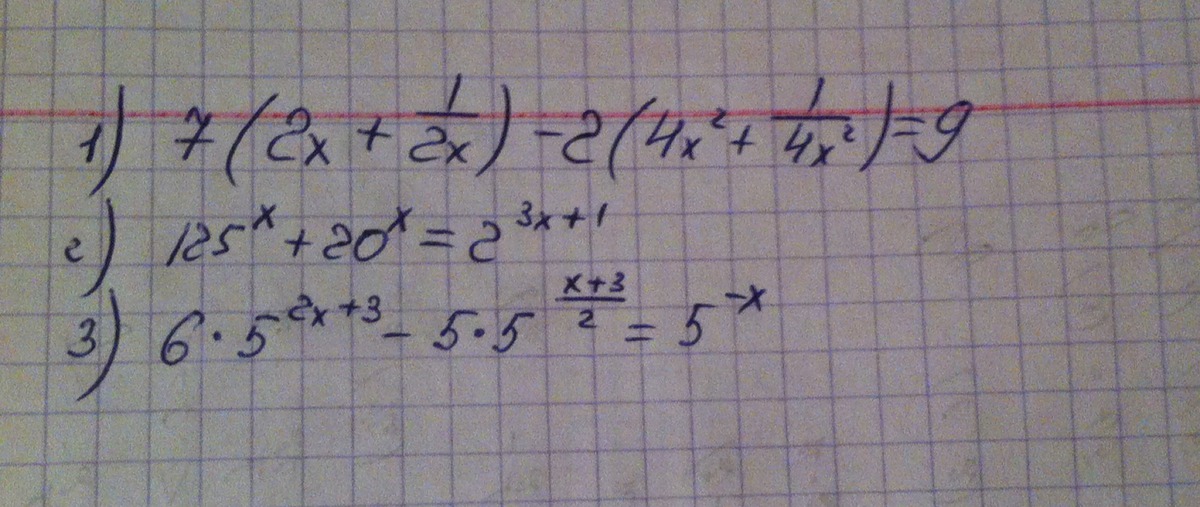 1) 7(2x + 1/2x) - 2(4x² + 1/4x²) = 9
2) 125^x + 20^x = 2^(3x+1)
3) 6·5^(2x+3) - 5·5^((x+3)/2) = 5^(-x)